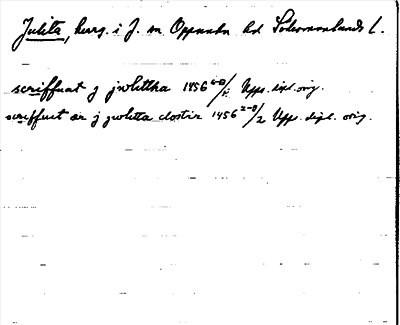 Julita, herrg. i J. sn Oppunda hd Södermanlands l.
scriffuat j jwlittha 1456 6-8/1 Upps. dipl. orig.
scriffuit ær j jwlitta closter 1456 2-9/2 Upps. dipl. orig.